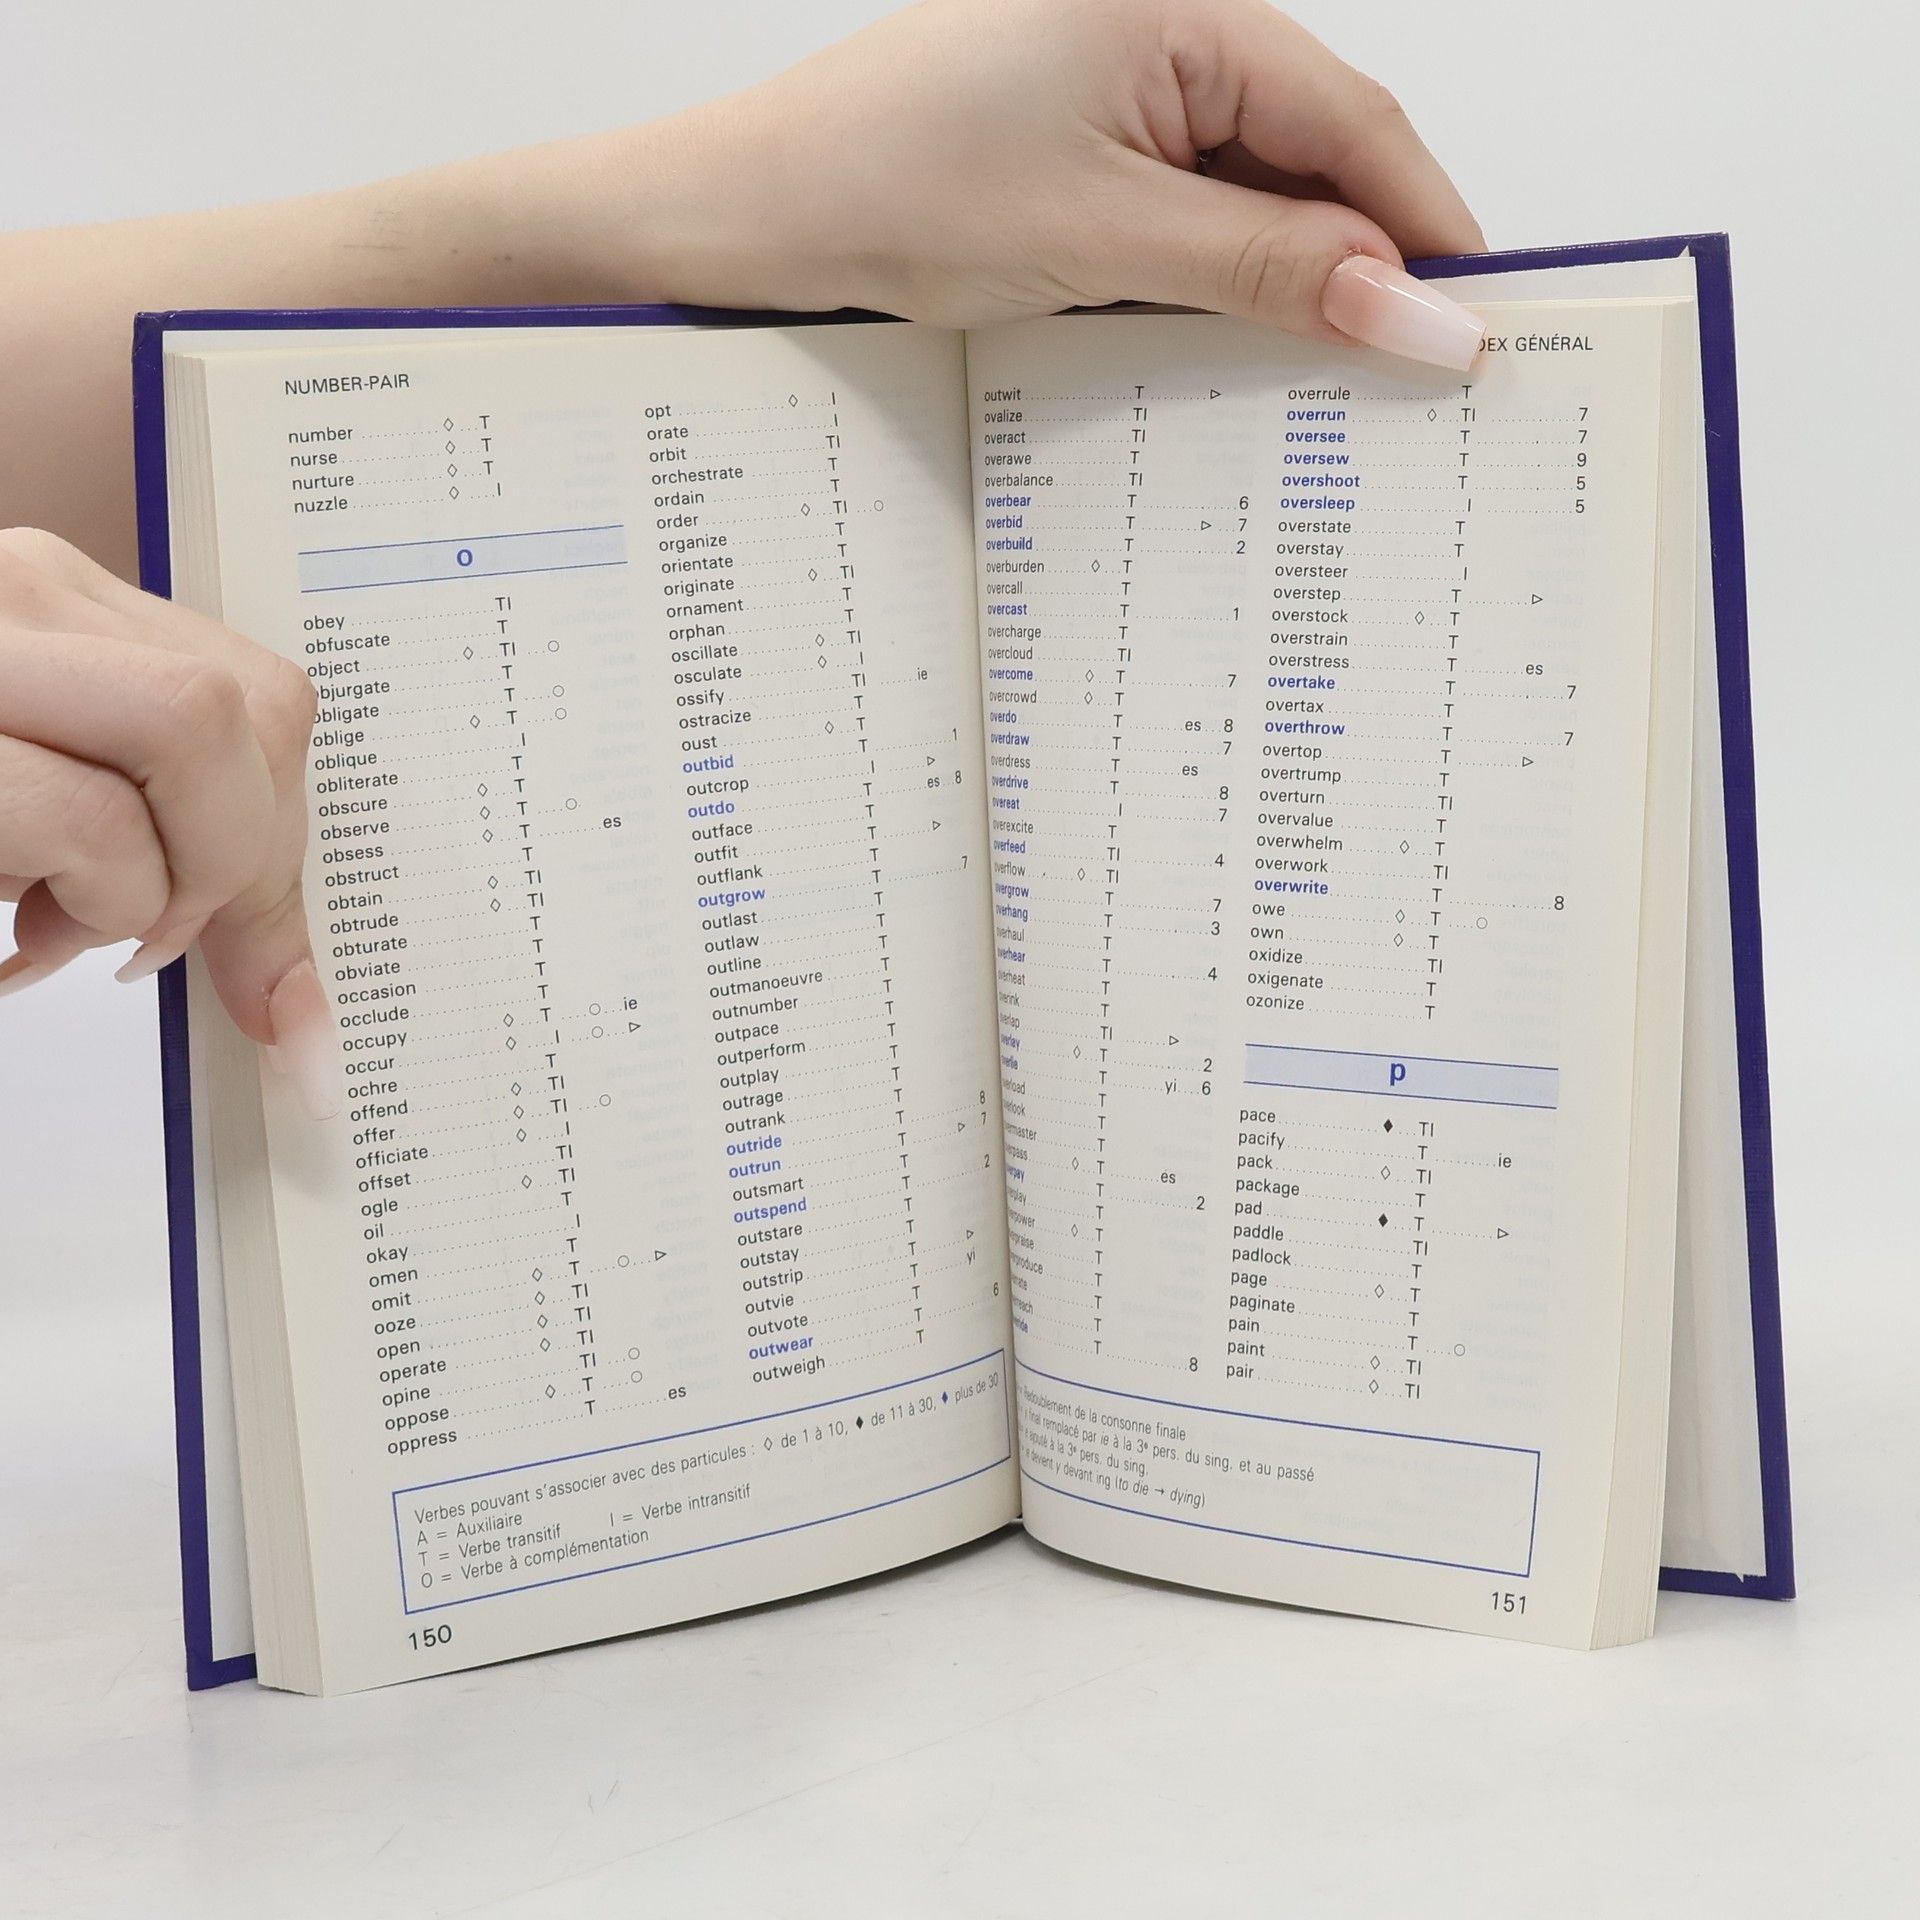 NUMBER-PAIR
number ◊ T
nurse ◊ T
nurture ◊ T
nuzzle ◊ I
o
obey TI
obfuscate T
object ◊ TI ○
objurgate T
obligate T ○
oblige ◊ T ○
oblique I
obliterate T
obscure ◊ T
observe ◊ T ○
obsess ◊ T es
obstruct T
obtain ◊ TI
obtrude ◊ TI
obturate T
obviate T
occasion T
occlude T
occupy ◊ T ○ ie
occur ◊ I ○ ▷
ochre T
offend ◊ TI
offer ◊ TI ○
officiate ◊ I
offset TI
ogle ◊ TI
oil T
okay I
omen T
omit ◊ T ○ ▷
ooze ◊ TI
open ◊ TI
operate ◊ TI
opine TI ○
oppose ◊ T ○
oppress T es
opt ◊ I
orate I
orbit TI
orchestrate T
ordain T
order ◊ TI ○
organize T
orientate T
originate ◊ TI
ornament T
orphan T
oscillate ◊ TI
osculate ◊ I
ossify TI ie
ostracize T
oust ◊ T
outbid T 1
outcrop I ▷
outdo T es 8
outface T
outfit T ▷
outflank T
outgrow T 7
outlast T
outlaw T
outline T
outmanoeuvre T
outnumber T
outpace T
outperform T
outplay T
outrage T
outrank T
outride T 8
outrun T ▷ 7
outsmart T
outspend T 2
outstare T
outstay T
outstrip T ▷
outvie T yi
outvote T
outwear T 6
outweigh T
Verbes pouvant s'associer avec des particules : ◊ de 1 à 10, ♦ de 11 à 30, ♦ plus de 30
A = Auxiliaire
T = Verbe transitif I = Verbe intransitif
O = Verbe à complémentation
150
DEX GÉNÉRAL
outwit T ▷
ovalize TI
overact TI
overawe T
overbalance TI
overbear T 6
overbid T ▷ 7
overbuild T 2
overburden ◊ T
overcall T
overcast T 1
overcharge T
overcloud TI
overcome ◊ T 7
overcrowd ◊ T
overdo T es 8
overdraw T 7
overdress T es
overdrive T 8
overeat I 7
overexcite T
overfeed TI 4
overflow ◊ TI
overgrow T 7
overhang T 3
overhaul T
overhear T 4
overheat T
overink T
overlap TI ▷
overlay ◊ T 2
overlie T yi 6
overload T
overlook T
vermaster T
verpass ◊ T es
verpay T 2
erplay T
erpower ◊ T
erpraise T
erproduce T
errate T
erreach T
erride T 8
overrule T
overrun ◊ TI 7
oversee T 7
oversew T 9
overshoot T 5
oversleep I 5
overstate T
overstay T
oversteer I
overstep T ▷
overstock ◊ T
overstrain T
overstress T es
overtake T 7
overtax T
overthrow T 7
overtop T ▷
overtrump T
overturn TI
overvalue T
overwhelm ◊ T
overwork TI
overwrite T 8
owe ◊ T ○
own ◊ T
oxidize TI
oxigenate T
ozonize T
p
pace ♦ TI
pacify T ie
pack ◊ TI
package T
pad ♦ T ▷
paddle TI
padlock T
page ◊ T
paginate T
pain T ○
paint ◊ TI
pair ◊ TI
Redoublement de la consonne finale
y final remplacé par ie à la 3e pers. du sing. et au passé
ajouté à la 3e pers. du sing.
devient y devant ing (to die → dying)
151